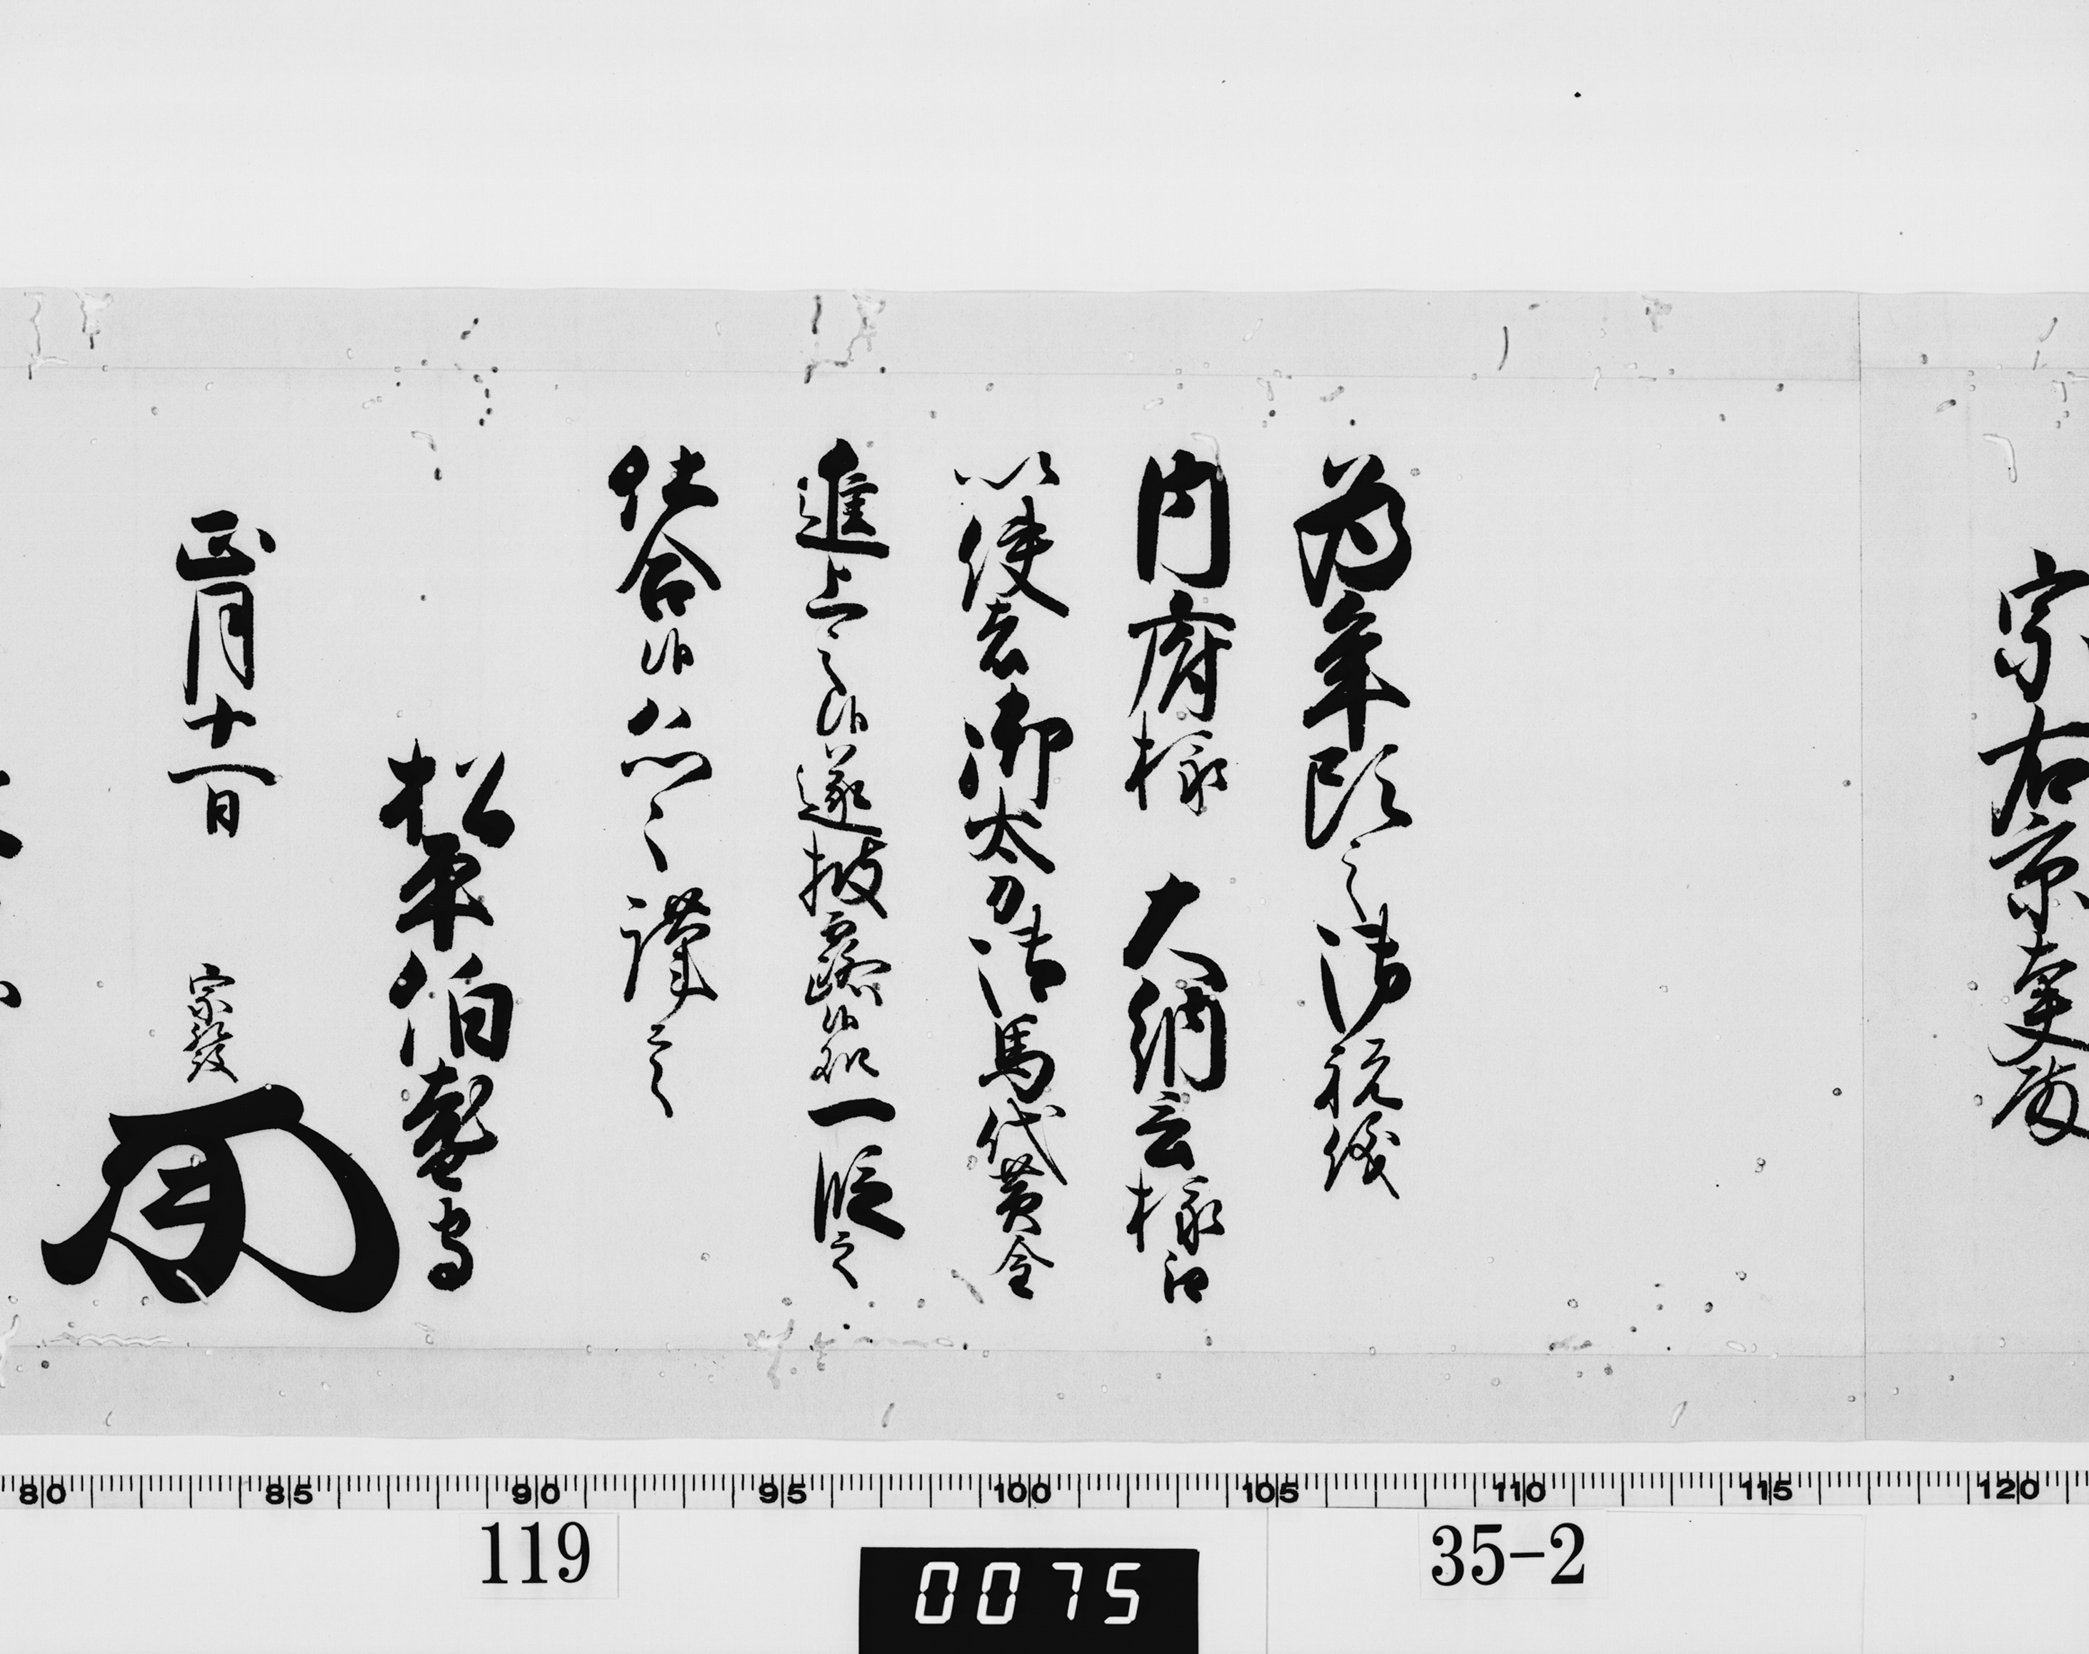 宗右京大夫殿
為年頭之御祝儀
内府様　大納言様江
以使者御太刀御馬代黄金
進上之候遂披露候処一段之
仕合候恐々謹言
松平伯耆守
正月十一日　宗発
80 85 90 95 100 105 110 115 120
119 0075 35-2